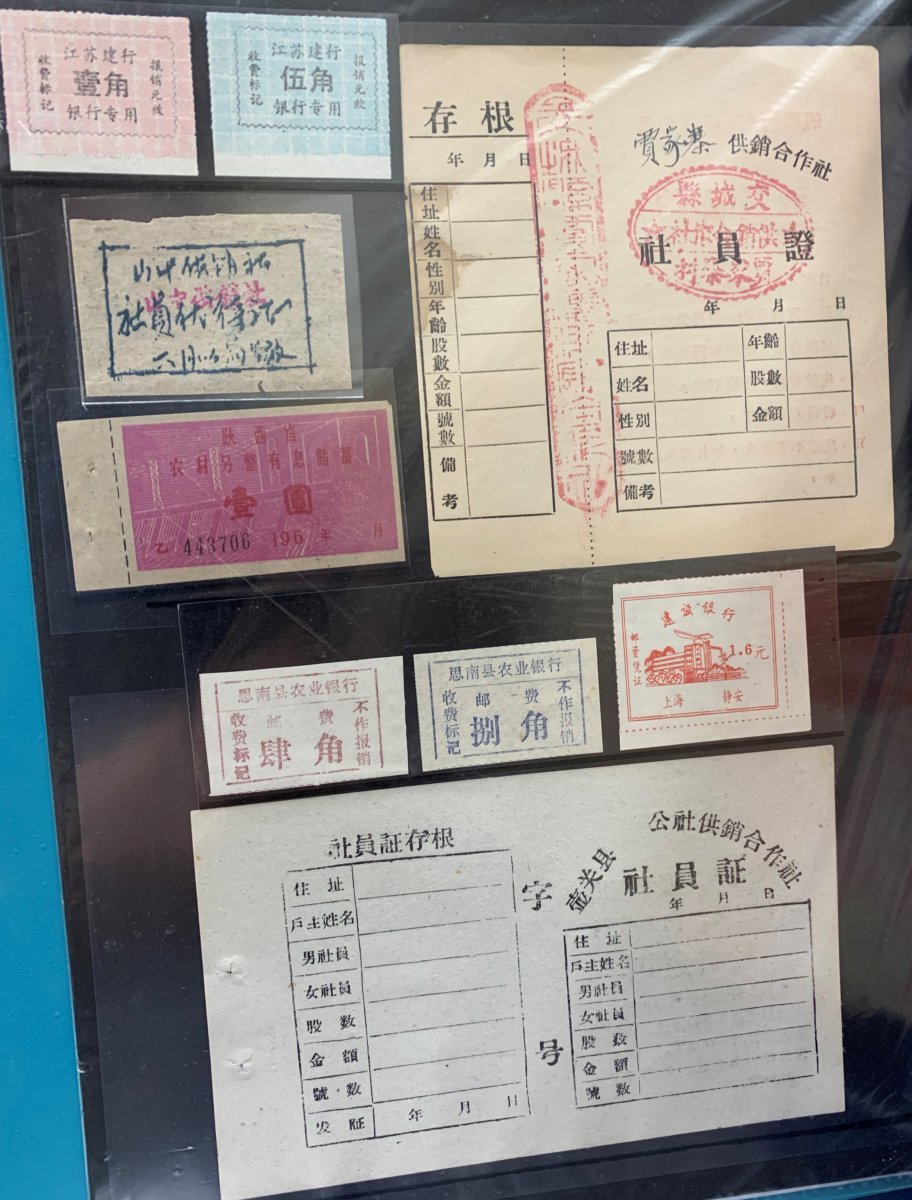 江苏建行
收费标记
壹角
报销无效
银行专用
江苏建行
收费标记
伍角
报销无效
银行专用
存根
年 月 日
住址
姓名
性别
年齡
股數
金額
號數
備考
賈家寨 供銷合作社
交城縣
供銷合作社
賈家寨村
社員證
年 月 日
住址 年齡
姓名 股數
性别 金額
號數
備考
供销社
社員
陕西省
农村另整有息贮蓄
壹圓
乙 443706 196 年 月
思南县农业银行
收费标记
邮费
肆角
不作报销
思南县农业银行
收费标记
邮费
捌角
不作报销
建设银行
邮资凭证
1.6元
上海 静安
社員証存根
住址
戶主姓名
男社員
女社員
股数
金額
號数
发証 年 月 日
字
号
壶关县 公社供銷合作社
社員証
年 月 日
住址
戶主姓名
男社員
女社員
股数
金額
號数